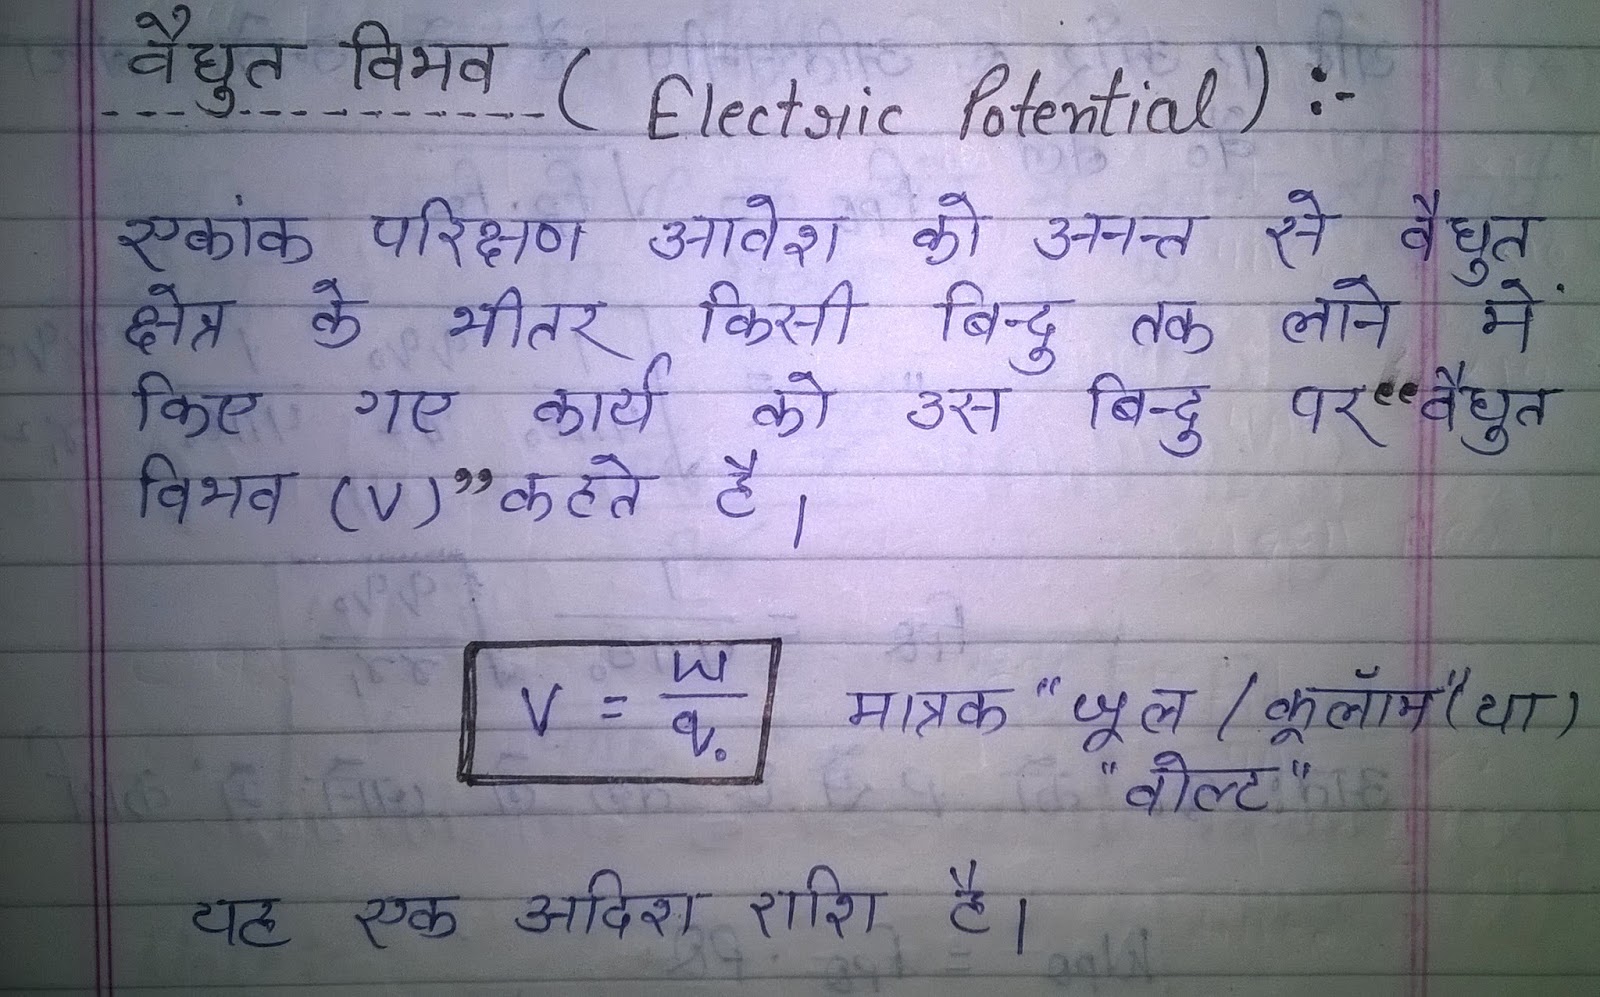 वैधुत विभव ( Electric Potential ) :-
एकांक परिक्षण आवेश को अनन्त से वैधुत
क्षेत्र के भीतर किसी बिन्दु तक लाने में
किए गए कार्य को उस बिन्दु पर “वैधुत
विभव (V)” कहते है।
V = W/q₀ मात्रक "जूल / कूलॉम" (या)
"वोल्ट"
यह एक अदिश राशि है।